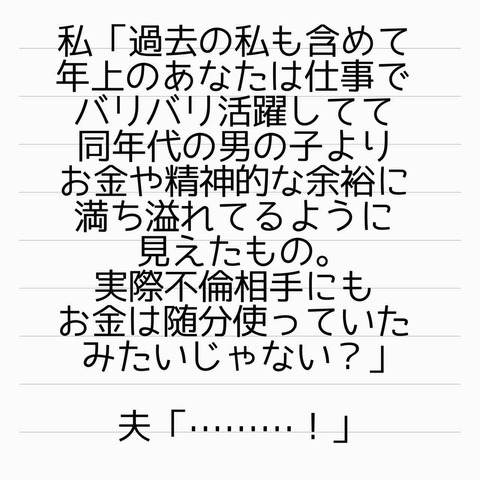 私「過去の私も含めて
年上のあなたは仕事で
バリバリ活躍してて
同年代の男の子より
お金や精神的な余裕に
満ち溢れてるように
見えたもの。
実際不倫相手にも
お金は随分使っていた
みたいじゃない？」
夫「………！」